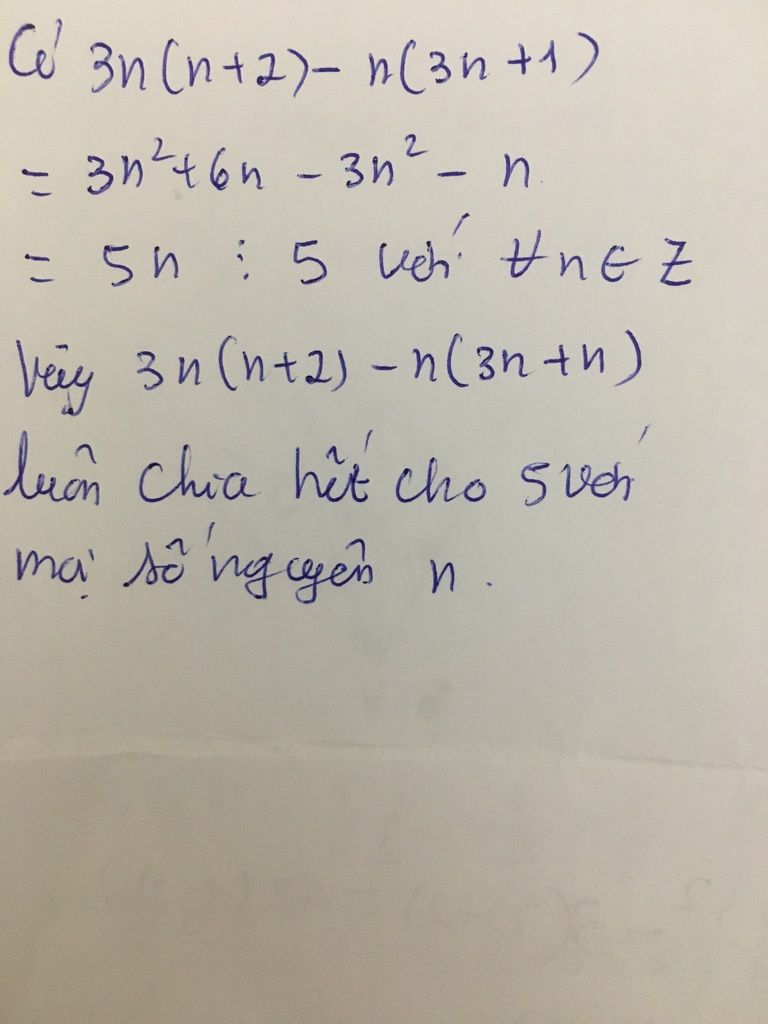 Có 3n(n+2) - n(3n+1)
= 3n²+6n - 3n² - n
= 5n ⋮ 5 với ∀n∈Z
Vậy 3n(n+2) - n(3n+n)
luôn chia hết cho 5 với
mọi số nguyên n.